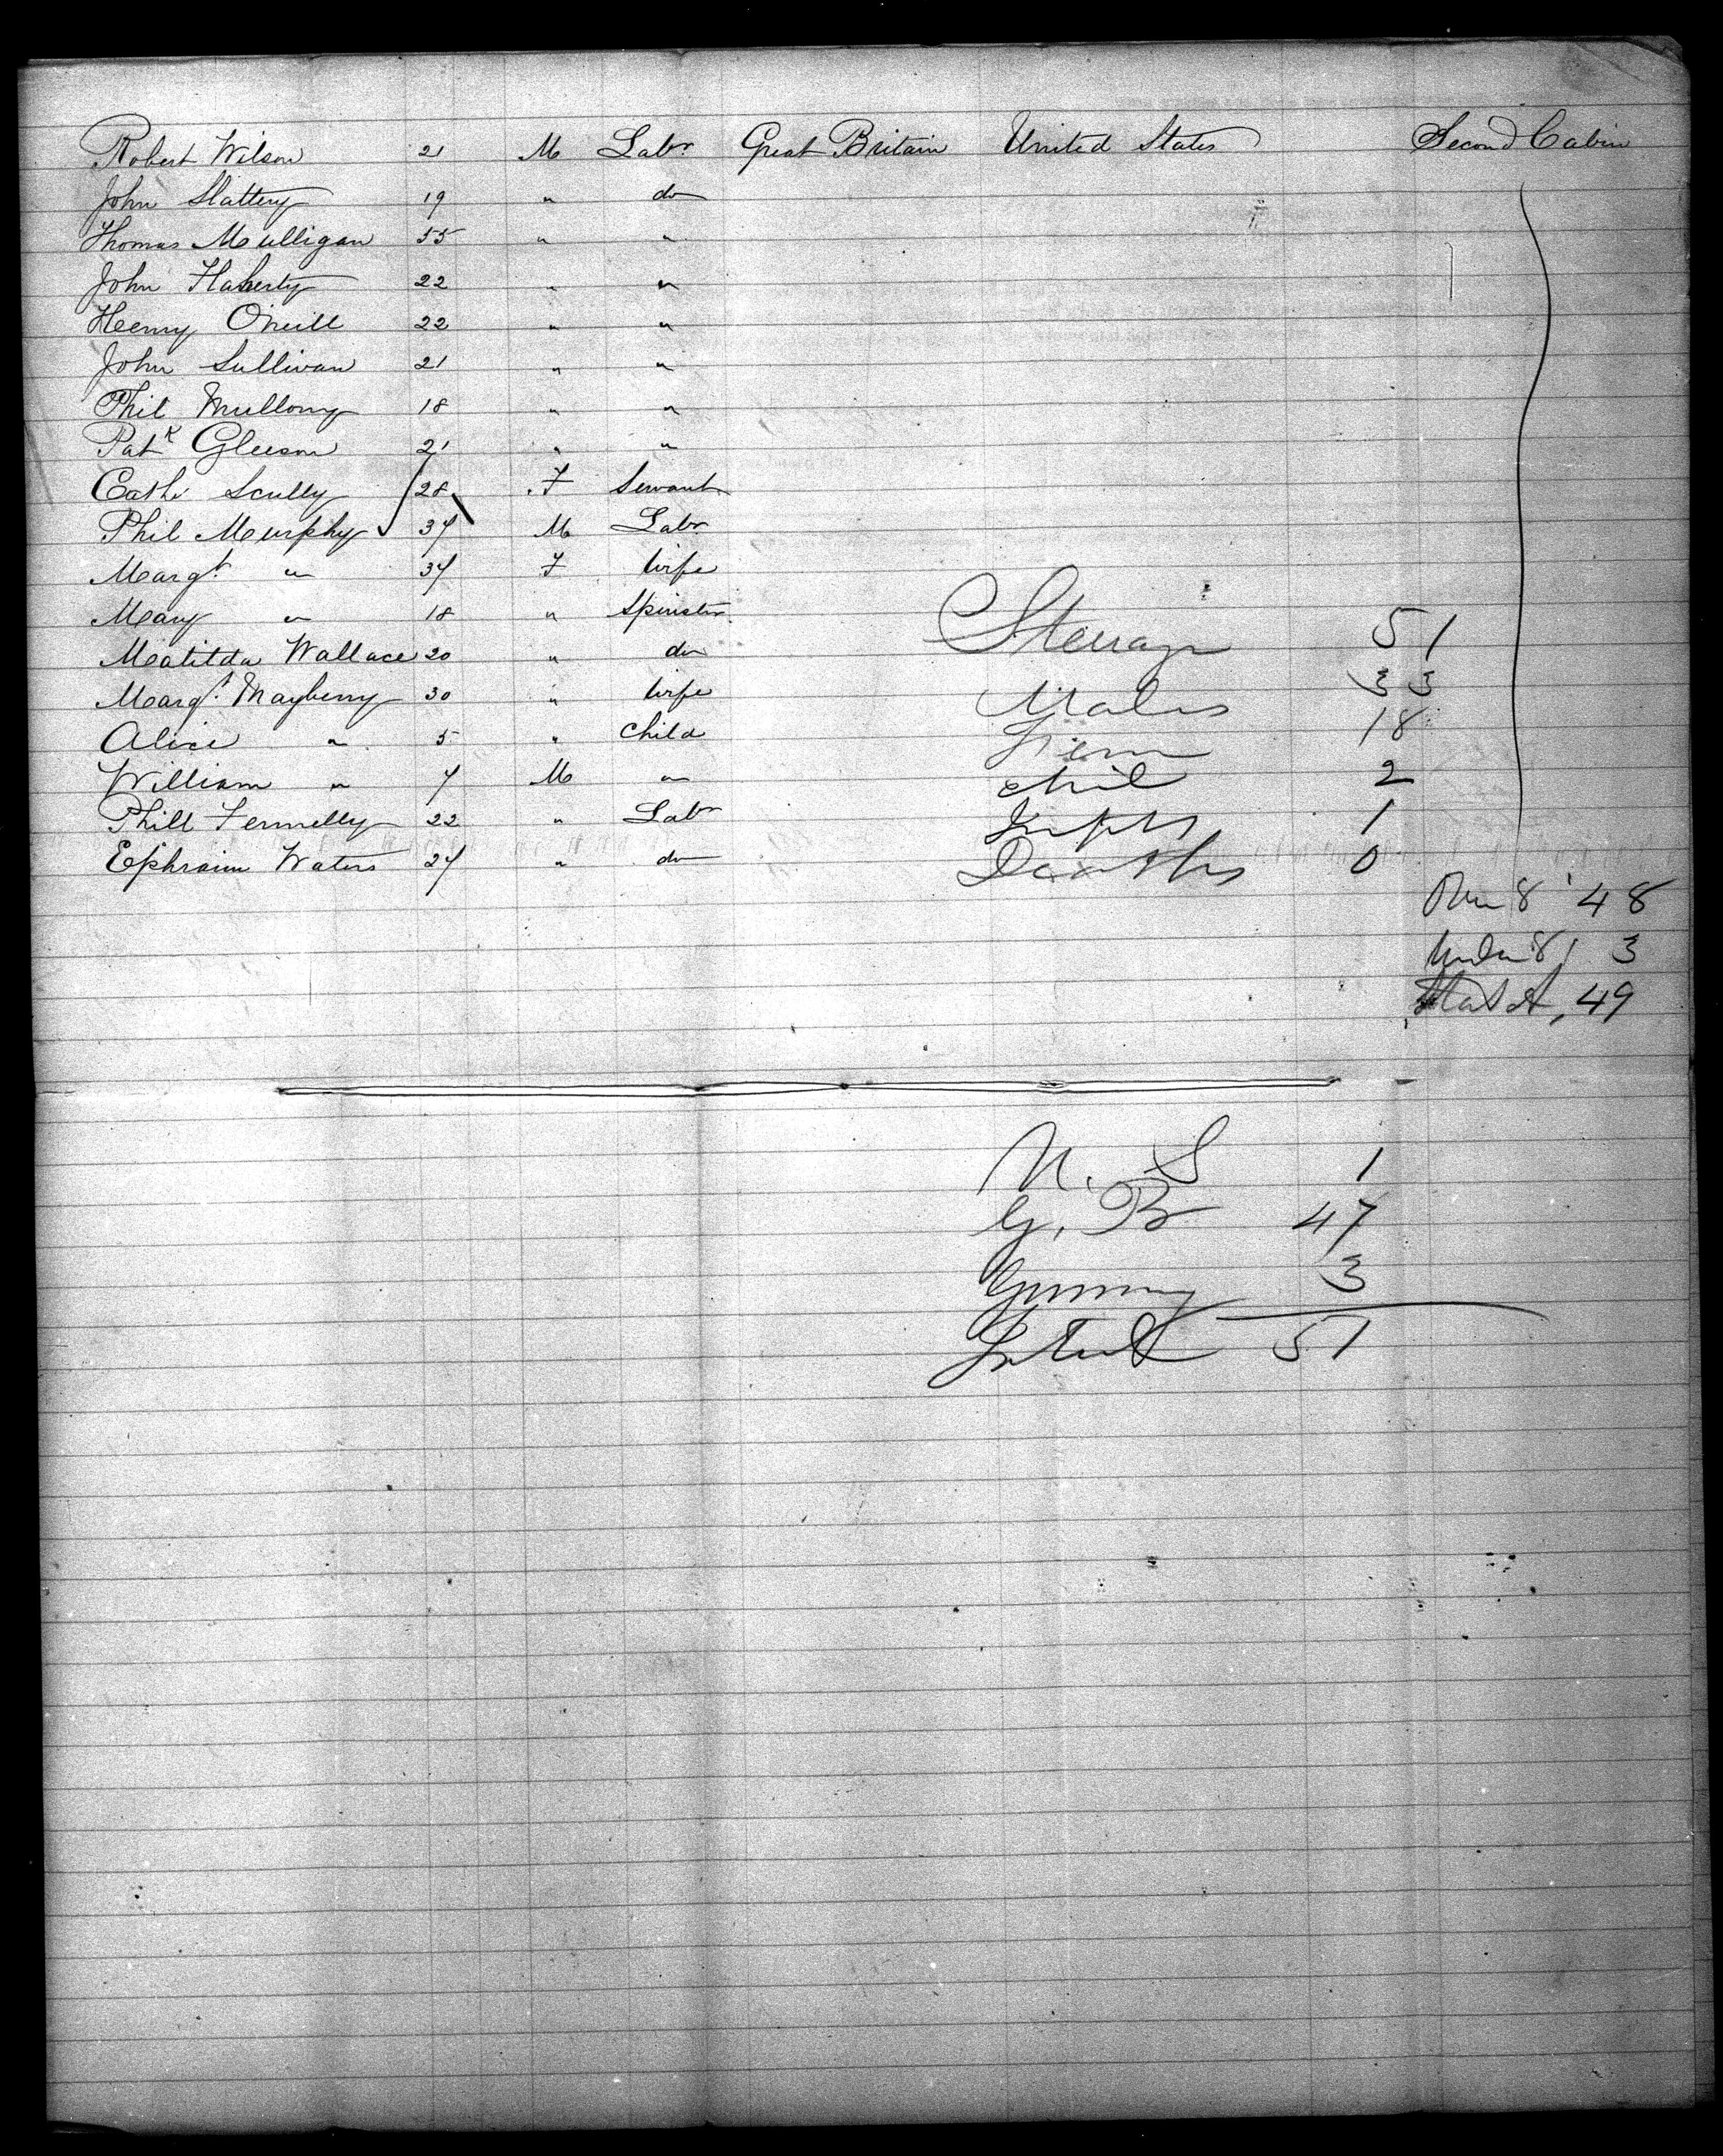 Robert Wilson 21 M Labr Great Britain United States Second Cabin
John Slattery 19 " do
Thomas Mulligan 55 " "
John Flaherty 22 " "
Henry O'neill 22 " "
John Sullivan 21 " "
Phil Mullony 18 " "
Patk Gleeson 21 " "
Cath Scully 28 F Servant
Phil Murphy 34 M Labr
Margt " 34 F Wife
Mary " 18 " Spinster
Matilda Wallace 20 " do
Margt Mayberry 30 " Wife
Alice " 5 " Child
William " 7 M "
Phill Fennelly 22 " Labr
Ephraim Waters 24 " do
Steerage 51
Males 33
Fem 18
Chil 2
Infts 1
Deaths 0
Over 8 48
Under 8 3
49
U. S 1
G. B 47
Germany 3
Total 51